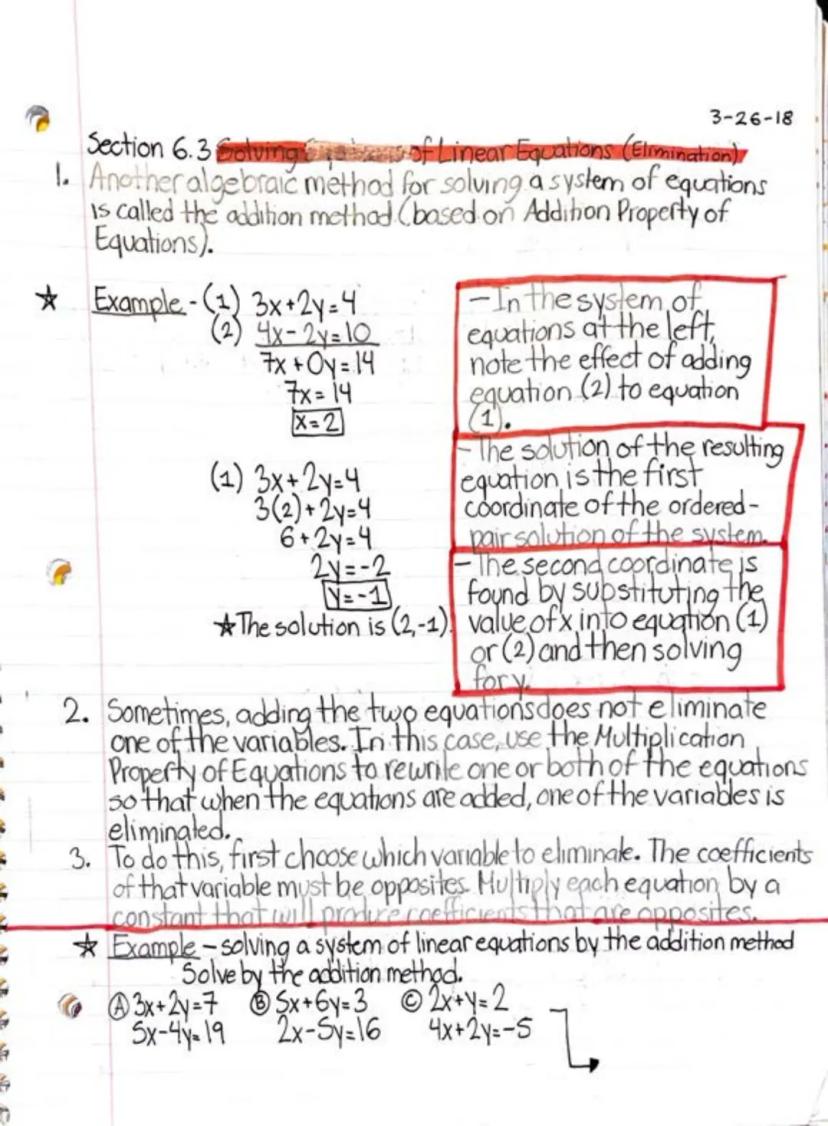 3-26-18
Section 6.3 Solving Systems of Linear Equations (Elimination)
1. Another algebraic method for solving a system of equations
is called the addition method (based on Addition Property of
Equations).
☆ Example - (1) 3x+2y=4
(2) 4x-2y=10
7x+0y=14
7x=14
x=2
(1) 3x+2y=4
3(2)+2y=4
6+2y=4
2y=-2
y=-1
★The solution is (2,-1).
-In the system of
equations at the left,
note the effect of adding
equation (2) to equation
(1).
-The solution of the resulting
equation is the first
coordinate of the ordered-
pair solution of the system.
-The second coordinate is
found by substituting the
value of x into equation (1)
or (2) and then solving
for y.
2. Sometimes, adding the two equations does not eliminate
one of the variables. In this case, use the Multiplication
Property of Equations to rewrite one or both of the equations
so that when the equations are added, one of the variables is
eliminated.
3. To do this, first choose which variable to eliminate. The coefficients
of that variable must be opposites. Multiply each equation by a
constant that will produce coefficients that are opposites.
☆ Example - solving a system of linear equations by the addition method
Solve by the addition method.
Ⓐ 3x+2y=7 Ⓑ 5x+6y=3 Ⓒ 2x+y=2
5x-4y=19 2x-5y=16 4x+2y=-5